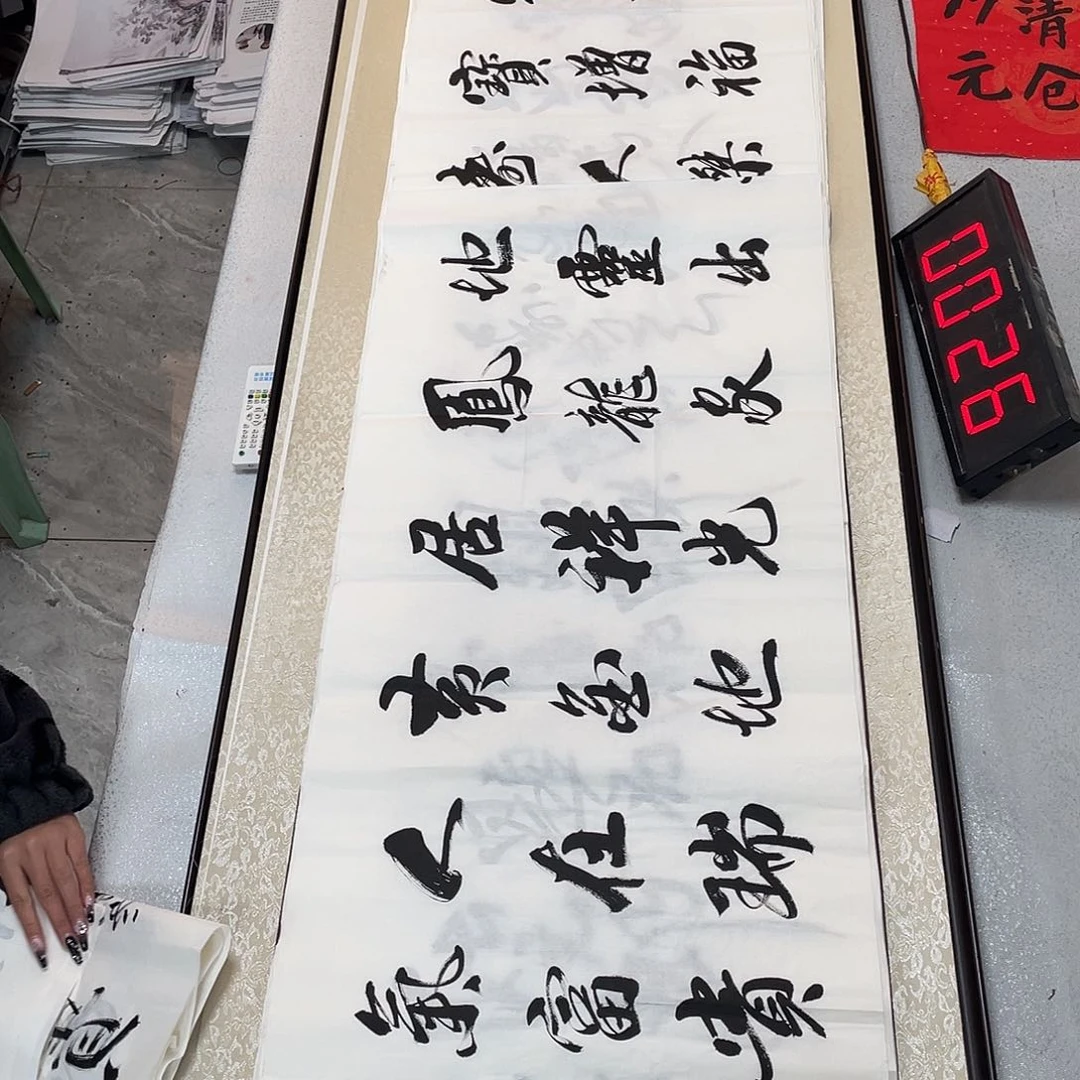 寶增福
壽人樂
地靈出
鳳龍家
居祥光
黄金地
人住瑞
氣富貴
清
元仓
0026